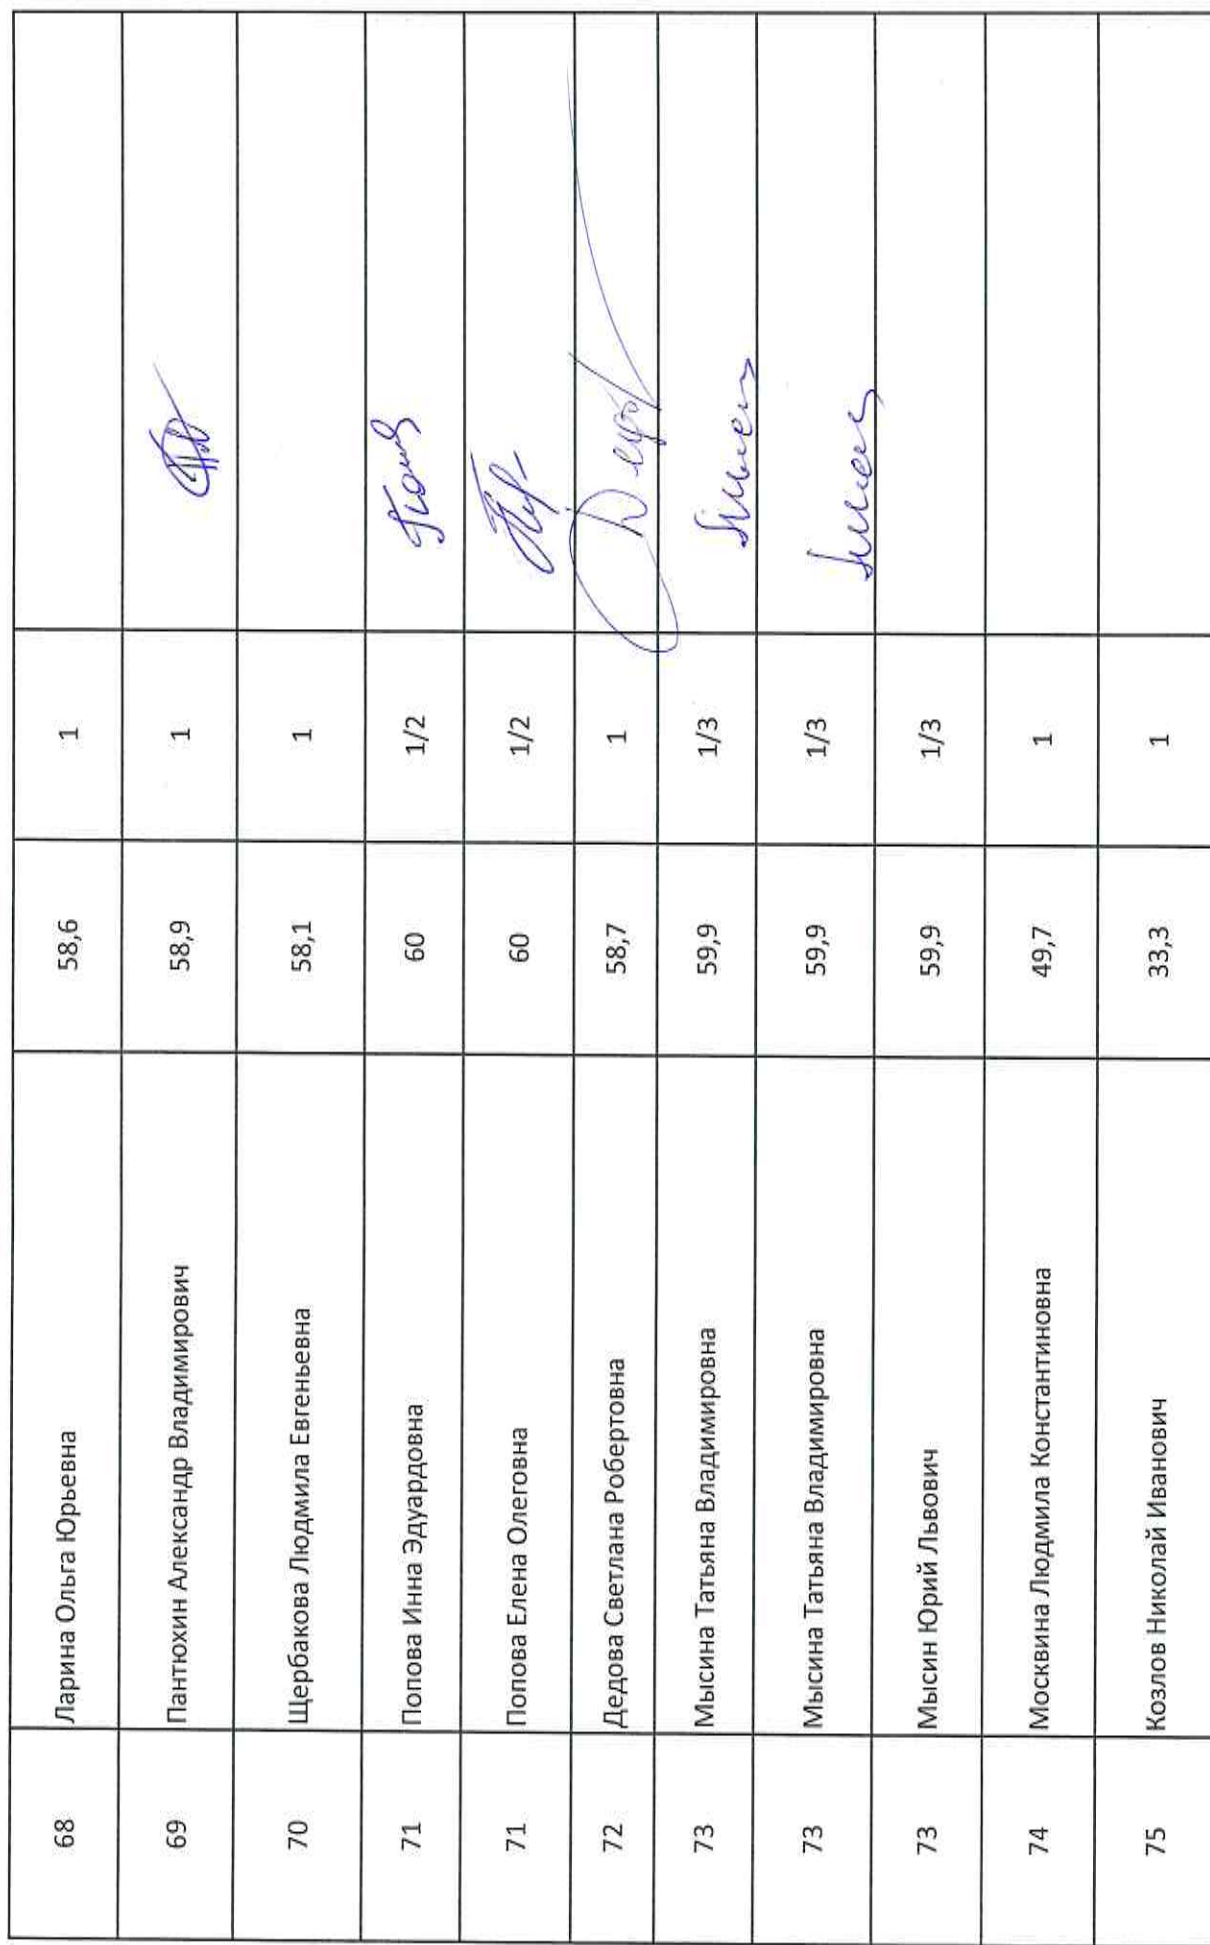 68 Ларина Ольга Юрьевна 58,6 1
69 Пантюхин Александр Владимирович 58,9 1
70 Щербакова Людмила Евгеньевна 58,1 1
71 Попова Инна Эдуардовна 60 1/2
71 Попова Елена Олеговна 60 1/2
72 Дедова Светлана Робертовна 58,7 1
73 Мысина Татьяна Владимировна 59,9 1/3
73 Мысина Татьяна Владимировна 59,9 1/3
73 Мысин Юрий Львович 59,9 1/3
74 Москвина Людмила Константиновна 49,7 1
75 Козлов Николай Иванович 33,3 1